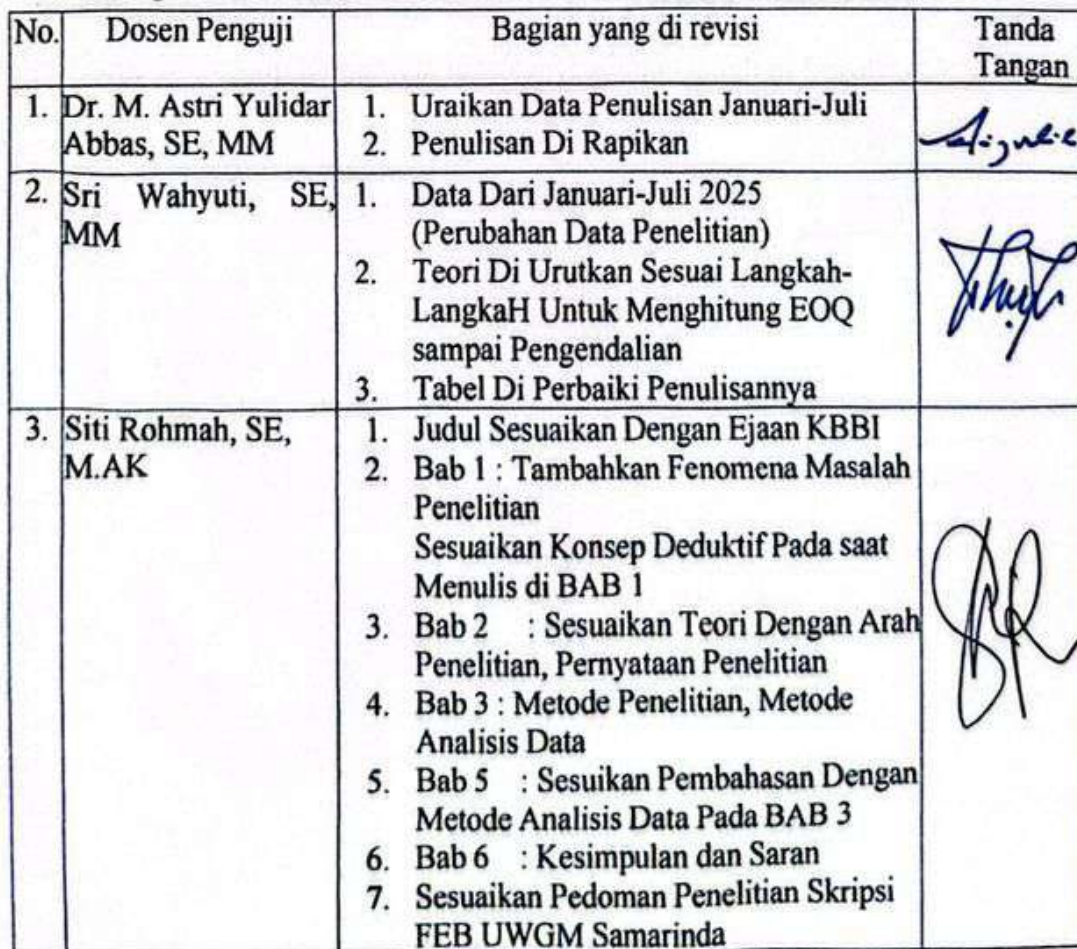 No. Dosen Penguji Bagian yang di revisi Tanda
Tangan
1. Dr. M. Astri Yulidar
Abbas, SE, MM
1. Uraikan Data Penulisan Januari-Juli
2. Penulisan Di Rapikan
2. Sri Wahyuti, SE,
MM
1. Data Dari Januari-Juli 2025
(Perubahan Data Penelitian)
2. Teori Di Urutkan Sesuai Langkah-
LangkaH Untuk Menghitung EOQ
sampai Pengendalian
3. Tabel Di Perbaiki Penulisannya
3. Siti Rohmah, SE,
M.AK
1. Judul Sesuaikan Dengan Ejaan KBBI
2. Bab 1 : Tambahkan Fenomena Masalah
Penelitian
Sesuaikan Konsep Deduktif Pada saat
Menulis di BAB 1
3. Bab 2 : Sesuaikan Teori Dengan Arah
Penelitian, Pernyataan Penelitian
4. Bab 3 : Metode Penelitian, Metode
Analisis Data
5. Bab 5 : Sesuikan Pembahasan Dengan
Metode Analisis Data Pada BAB 3
6. Bab 6 : Kesimpulan dan Saran
7. Sesuaikan Pedoman Penelitian Skripsi
FEB UWGM Samarinda